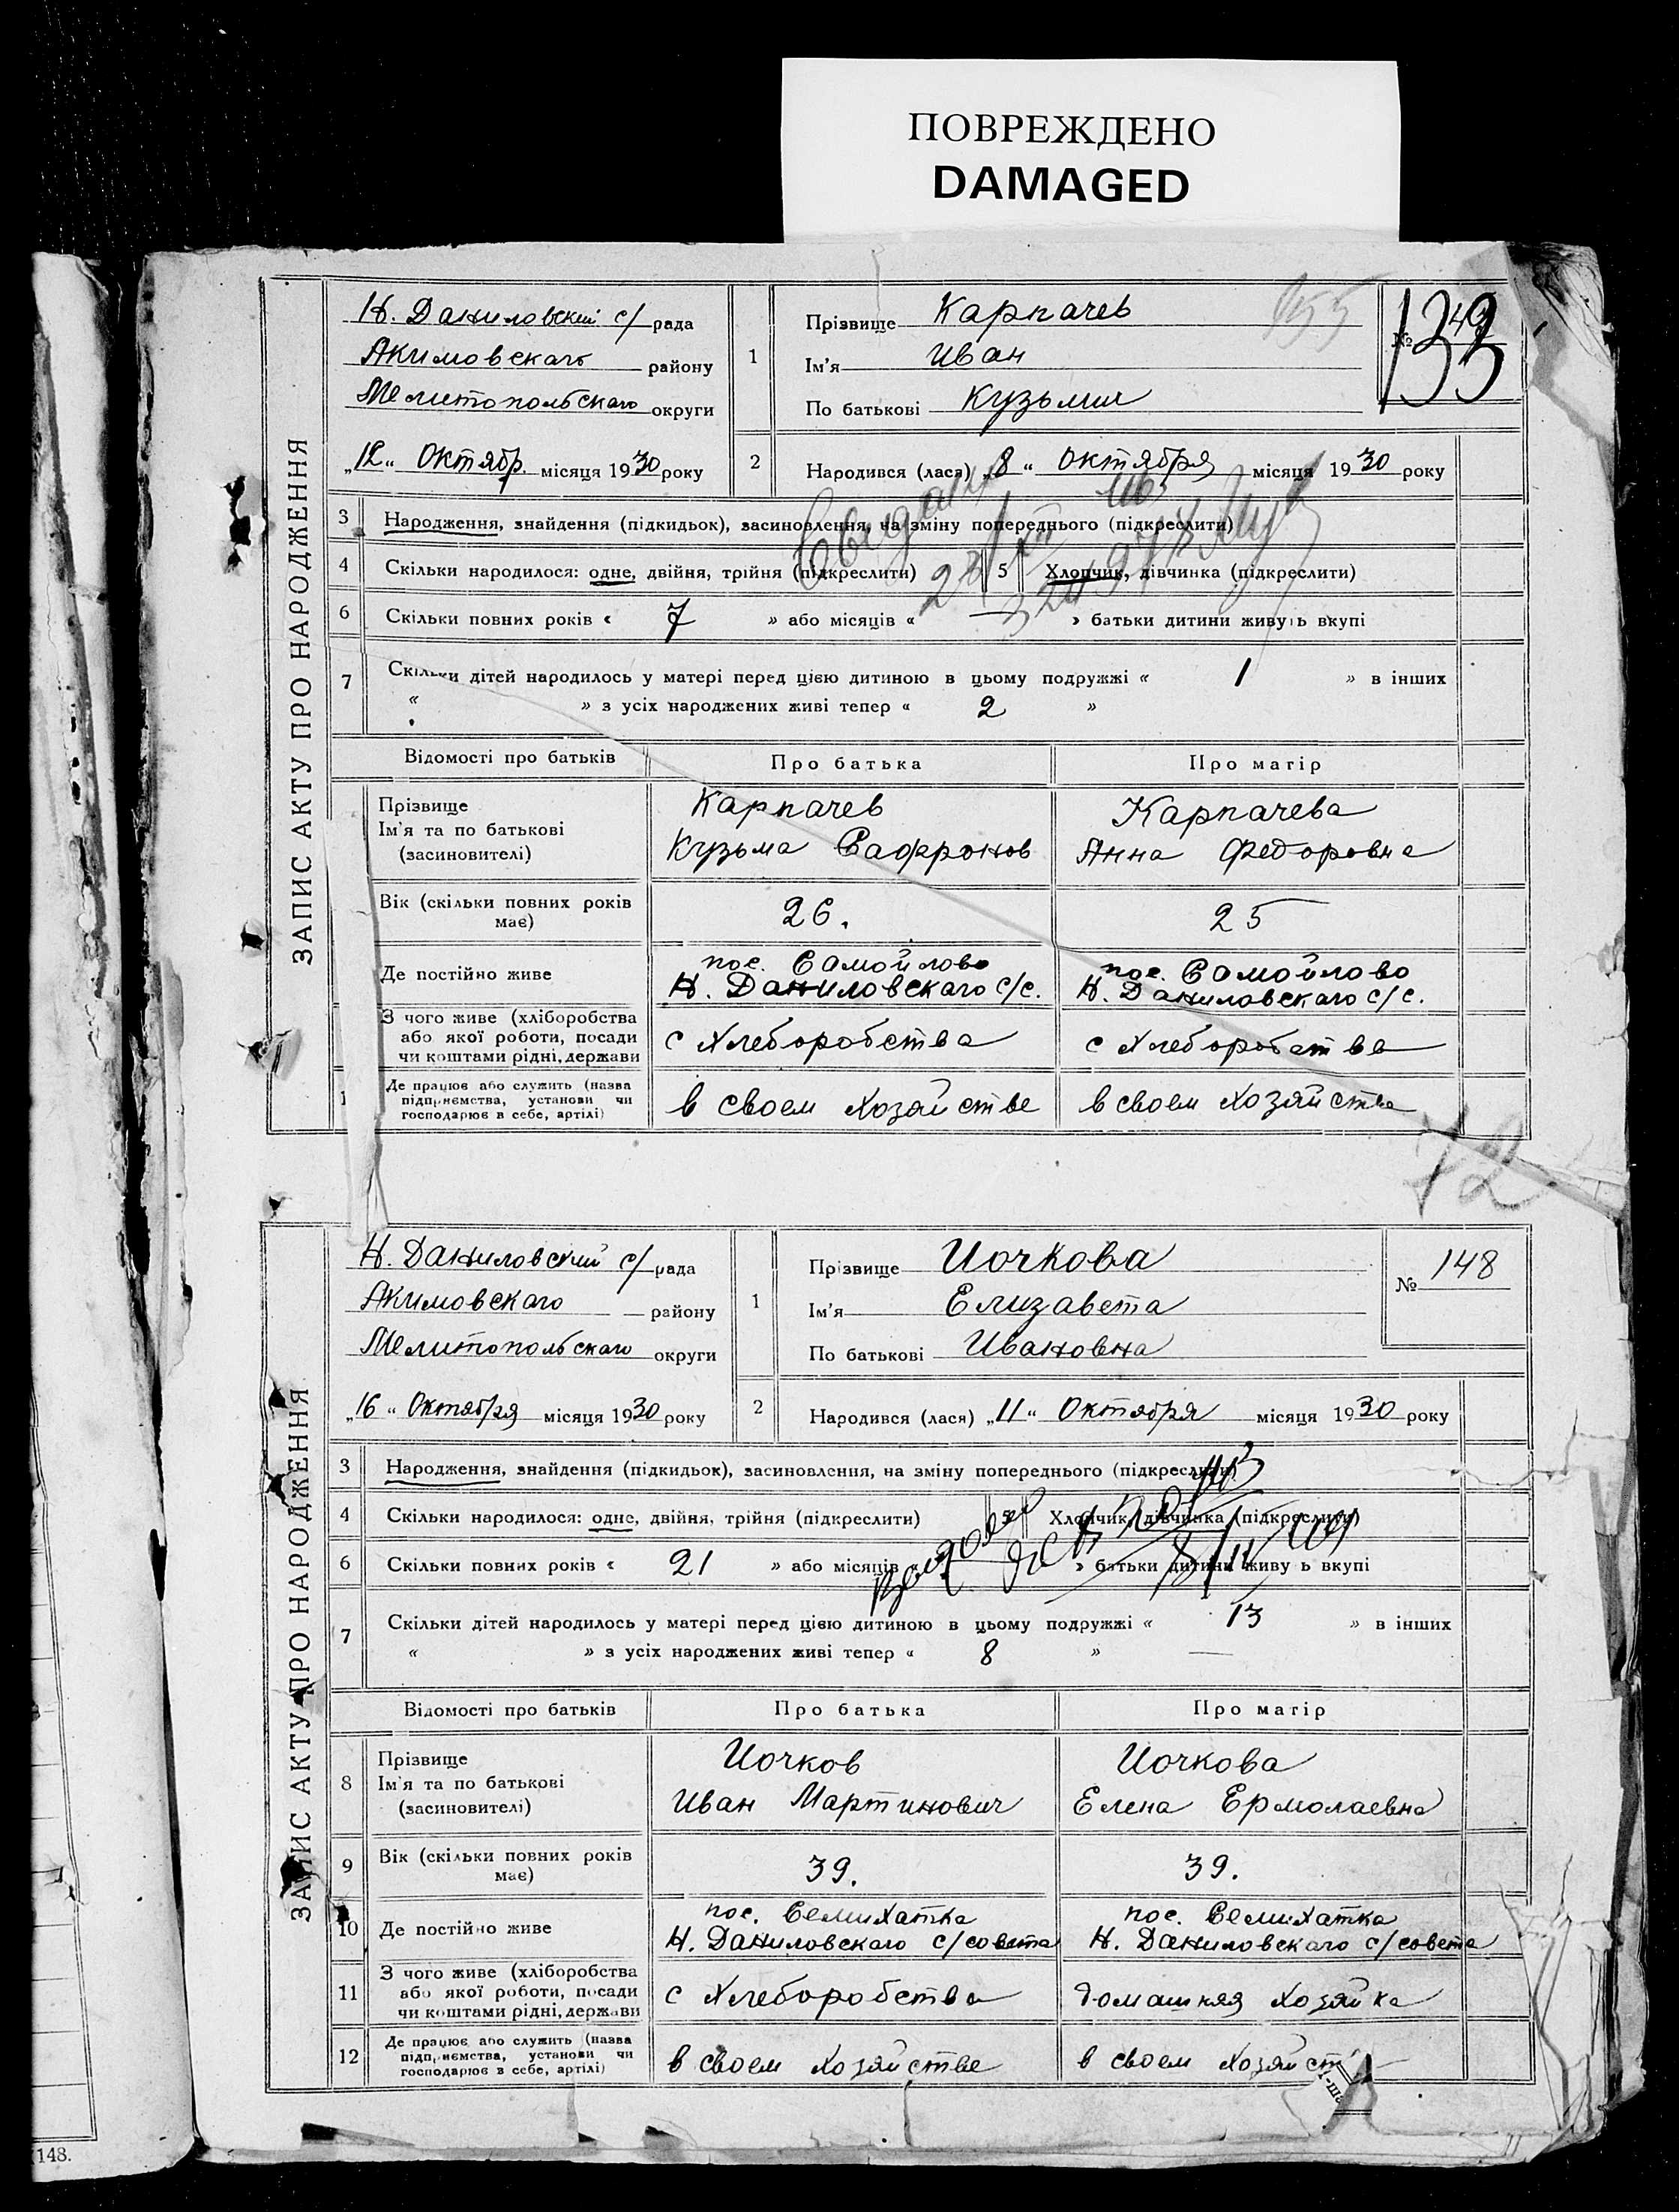 ПОВРЕЖДЕНО
DAMAGED
ЗАПИС АКТУ ПРО НАРОДЖЕННЯ
Н. Даниловский с/ рада
Акимовскаго району
Мелитопольскаго округи
„12“ Октябр. місяця 1930 року
1
Прізвище Карпачев
Ім'я Иван
По батькові Кузьмич
№
133
2
Народився (лася) „8“ Октября місяця 1930 року
3 Народження, знайдення (підкидьок), засиновлення, на зміну попереднього (підкреслити)
4 Скільки народилося: одне, двійня, трійня (підкреслити) 5 Хлопчик, дівчинка (підкреслити)
6 Скільки повних років « 7 » або місяців « — » батьки дитини живуть вкупі
7 Скільки дітей народилось у матері перед цією дитиною в цьому подружжі « 1 » в інших
« » з усіх народжених живі тепер « 2 »
Відомості про батьків Про батька Про матір
Прізвище
Ім'я та по батькові
(засиновителі)
Карпачев
Кузьма Сафронов
Карпачева
Анна Федоровна
Вік (скільки повних років
має)
26.
25
Де постійно живе
пос. Самойлово
Н. Даниловскаго с/с.
пос. Самойлово
Н. Даниловскаго с/с.
З чого живе (хліборобства
або якої роботи, посади
чи коштами рідні, держави
с хлеборобства
с хлеборобства
Де працює або служить (назва
підприємства, установи чи
господарює в себе, артілі)
в своем хозяйстве
в своем хозяйстве
72
ЗАПИС АКТУ ПРО НАРОДЖЕННЯ
Н. Даниловский с/ рада
Акимовскаго району
Мелитопольскаго округи
„16“ Октября місяця 1930 року
1
Прізвище Иочкова
Ім'я Елизавета
По батькові Ивановна
№ 148
2
Народився (лася) „11“ Октября місяця 1930 року
3 Народження, знайдення (підкидьок), засиновлення, на зміну попереднього (підкреслити)
4 Скільки народилося: одне, двійня, трійня (підкреслити) Хлопчик, дівчинка (підкреслити)
6 Скільки повних років « 21 » або місяців « » батьки дитини живу ь вкупі
7 Скільки дітей народилось у матері перед цією дитиною в цьому подружжі « 13 » в інших
« » з усіх народжених живі тепер « 8 » —
Відомості про батьків Про батька Про матір
8
Прізвище
Ім'я та по батькові
(засиновителі)
Иочков
Иван Мартинович
Иочкова
Елена Ермолаевна
9
Вік (скільки повних років
має)
39.
39.
10
Де постійно живе
пос. Семихатка
Н. Даниловскаго с/совета
пос. Семихатка
Н. Даниловскаго с/совета
11
З чого живе (хліборобства
або якої роботи, посади
чи коштами рідні, держави
с хлеборобства
домашняя хозяйка
12
Де працює або служить (назва
підприємства, установи чи
господарює в себе, артілі)
в своем хозяйстве
в своем хозяйст
148.